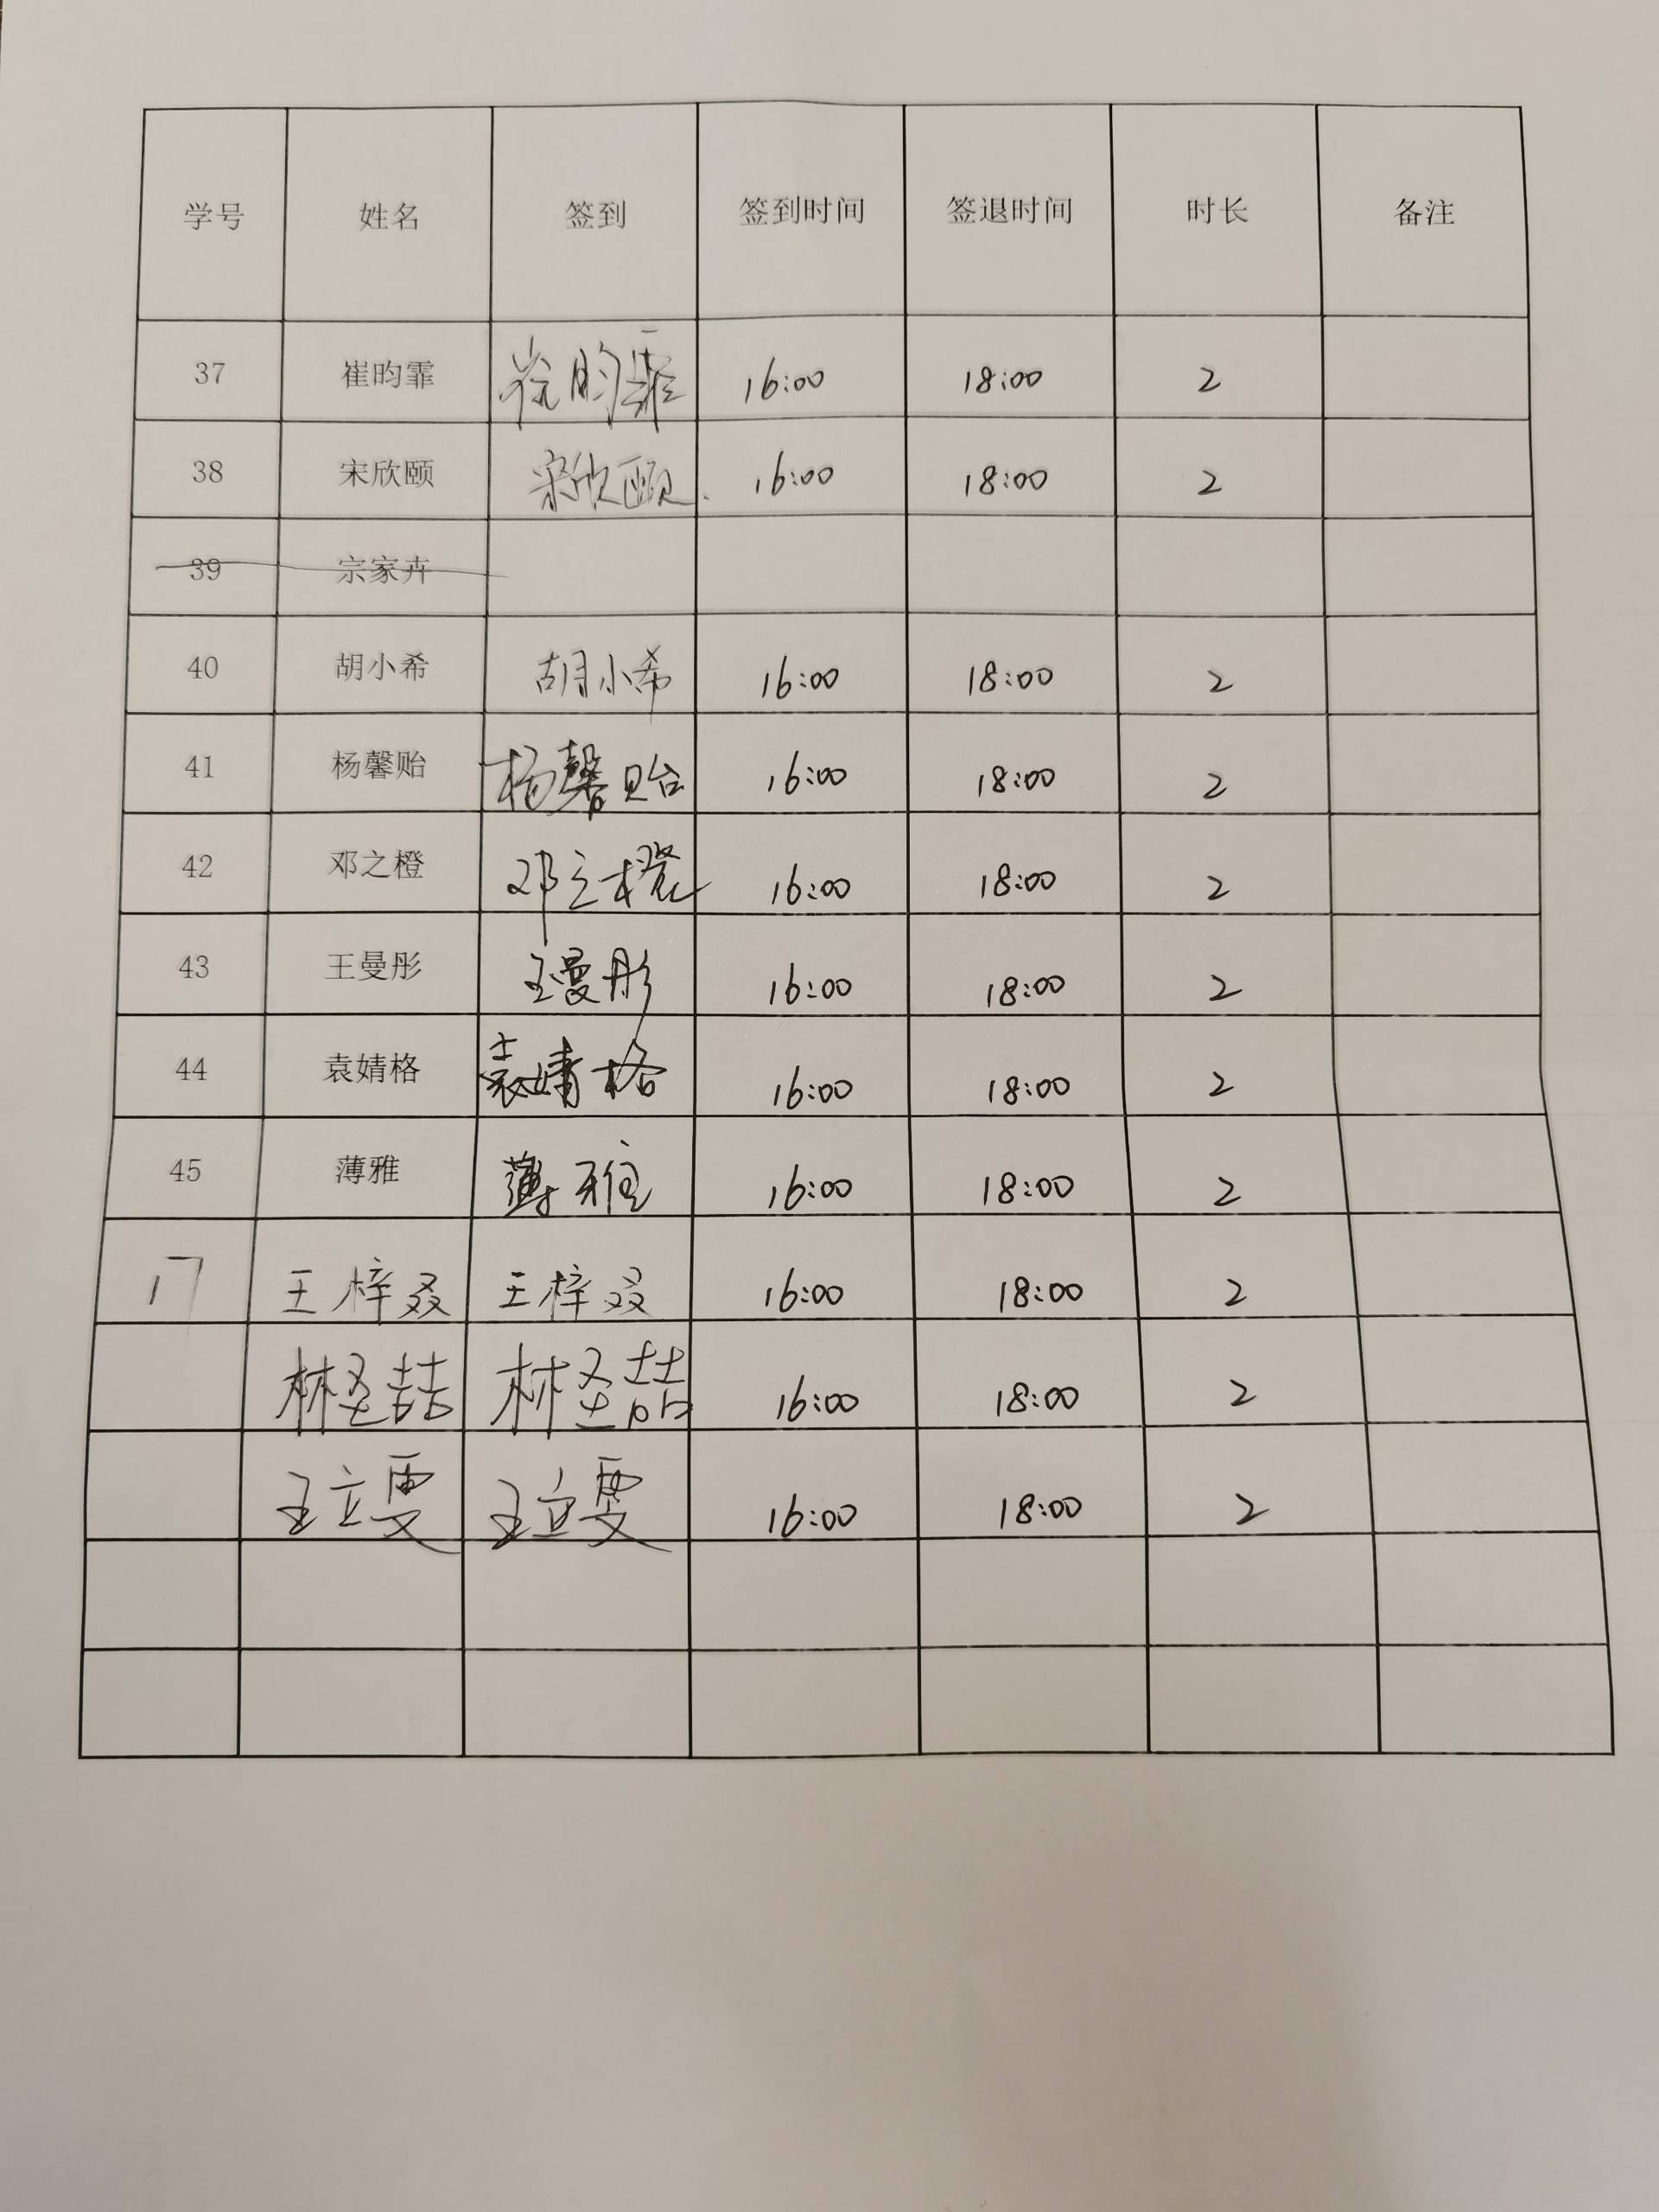 学号 姓名 签到 签到时间 签退时间 时长 备注
37 崔昀霏 崔昀霏 16:00 18:00 2
38 宋欣颐 宋欣颐. 16:00 18:00 2
39 宗家卉
40 胡小希 胡小希 16:00 18:00 2
41 杨馨贻 杨馨贻 16:00 18:00 2
42 邓之橙 邓之橙 16:00 18:00 2
43 王曼彤 王曼彤 16:00 18:00 2
44 袁婧格 袁婧格 16:00 18:00 2
45 薄雅 薄雅 16:00 18:00 2
17 王梓叒 王梓叒 16:00 18:00 2
林圣喆 林圣喆 16:00 18:00 2
王立雯 王立雯 16:00 18:00 2